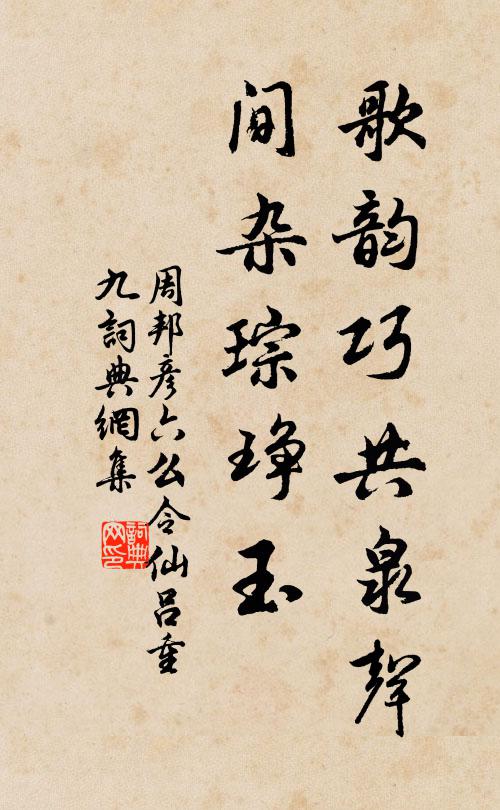 歌韵巧共泉聲
间杂琮琤玉
周邦彦六么令仙吕重
九詞典網集
詞典
网印